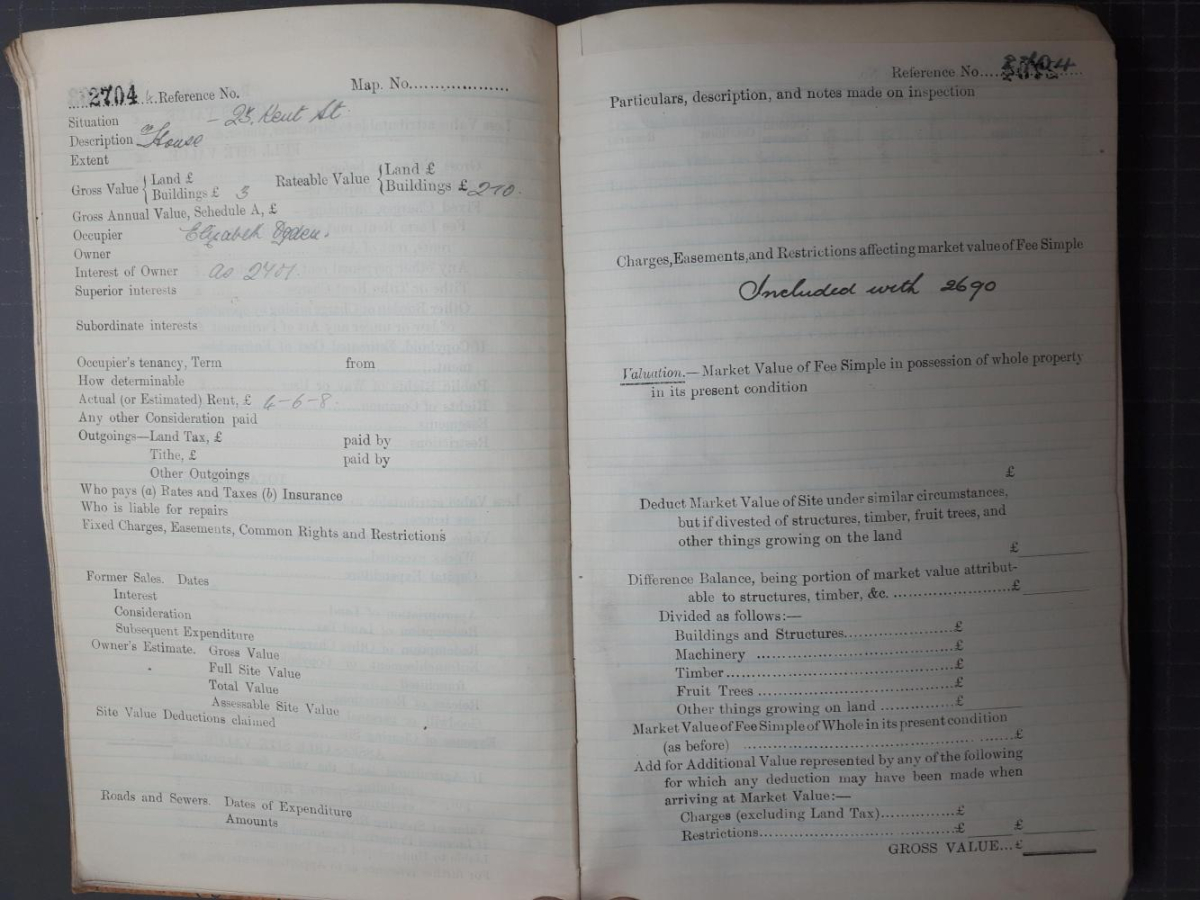 2704 Reference No. Map. No...................
Situation - 23, Kent St
Description House
Extent
Gross Value { Land £
Buildings £ 3
Rateable Value { Land £
Buildings £ 2-10.
Gross Annual Value, Schedule A, £
Occupier Elizabeth Ogden.
Owner
Interest of Owner as 2701
Superior interests
Subordinate interests
Occupier's tenancy, Term from
How determinable
Actual (or Estimated) Rent, £ 4-6-8.
Any other Consideration paid
Outgoings—Land Tax, £ paid by
Tithe, £ paid by
Other Outgoings
Who pays (a) Rates and Taxes (b) Insurance
Who is liable for repairs
Fixed Charges, Easements, Common Rights and Restrictions
Former Sales. Dates
Interest
Consideration
Subsequent Expenditure
Owner's Estimate. Gross Value
Full Site Value
Total Value
Assessable Site Value
Site Value Deductions claimed
Roads and Sewers. Dates of Expenditure
Amounts
Reference No. 2704
Particulars, description, and notes made on inspection
Charges, Easements, and Restrictions affecting market value of Fee Simple
Included with 2690
Valuation.—Market Value of Fee Simple in possession of whole property
in its present condition
£
Deduct Market Value of Site under similar circumstances,
but if divested of structures, timber, fruit trees, and
other things growing on the land
£
Difference Balance, being portion of market value attribut-
able to structures, timber, &c. ......................£
Divided as follows:—
Buildings and Structures....................£
Machinery ....................................£
Timber..........................................£
Fruit Trees ....................................£
Other things growing on land ..............£
Market Value of Fee Simple of Whole in its present condition
(as before) ..............................................£
Add for Additional Value represented by any of the following
for which any deduction may have been made when
arriving at Market Value:—
Charges (excluding Land Tax)..............£
Restrictions....................................£ £
GROSS VALUE...£